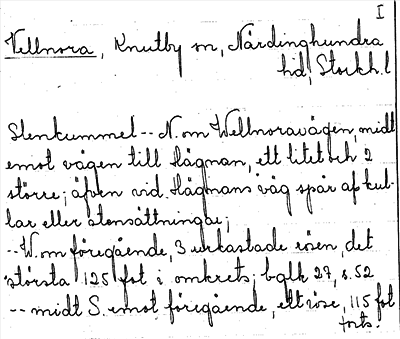 I
Vellnora, Knutby sn, Närdinghundra
hd, Stockh.l
Stenkummel -- N. om Wellnoravägen, midt
emot vägen till Hågnan, ett litet och 2
större; äfven vid Hågnans väg spår af kul-
lar eller stensättningar;
-- W. om föregående, 3 urkastade rösen, det
största 125 fot i omkrets; bglk 27, s. 52
-- midt S. emot föregående, ett röse, 115 fot
forts.